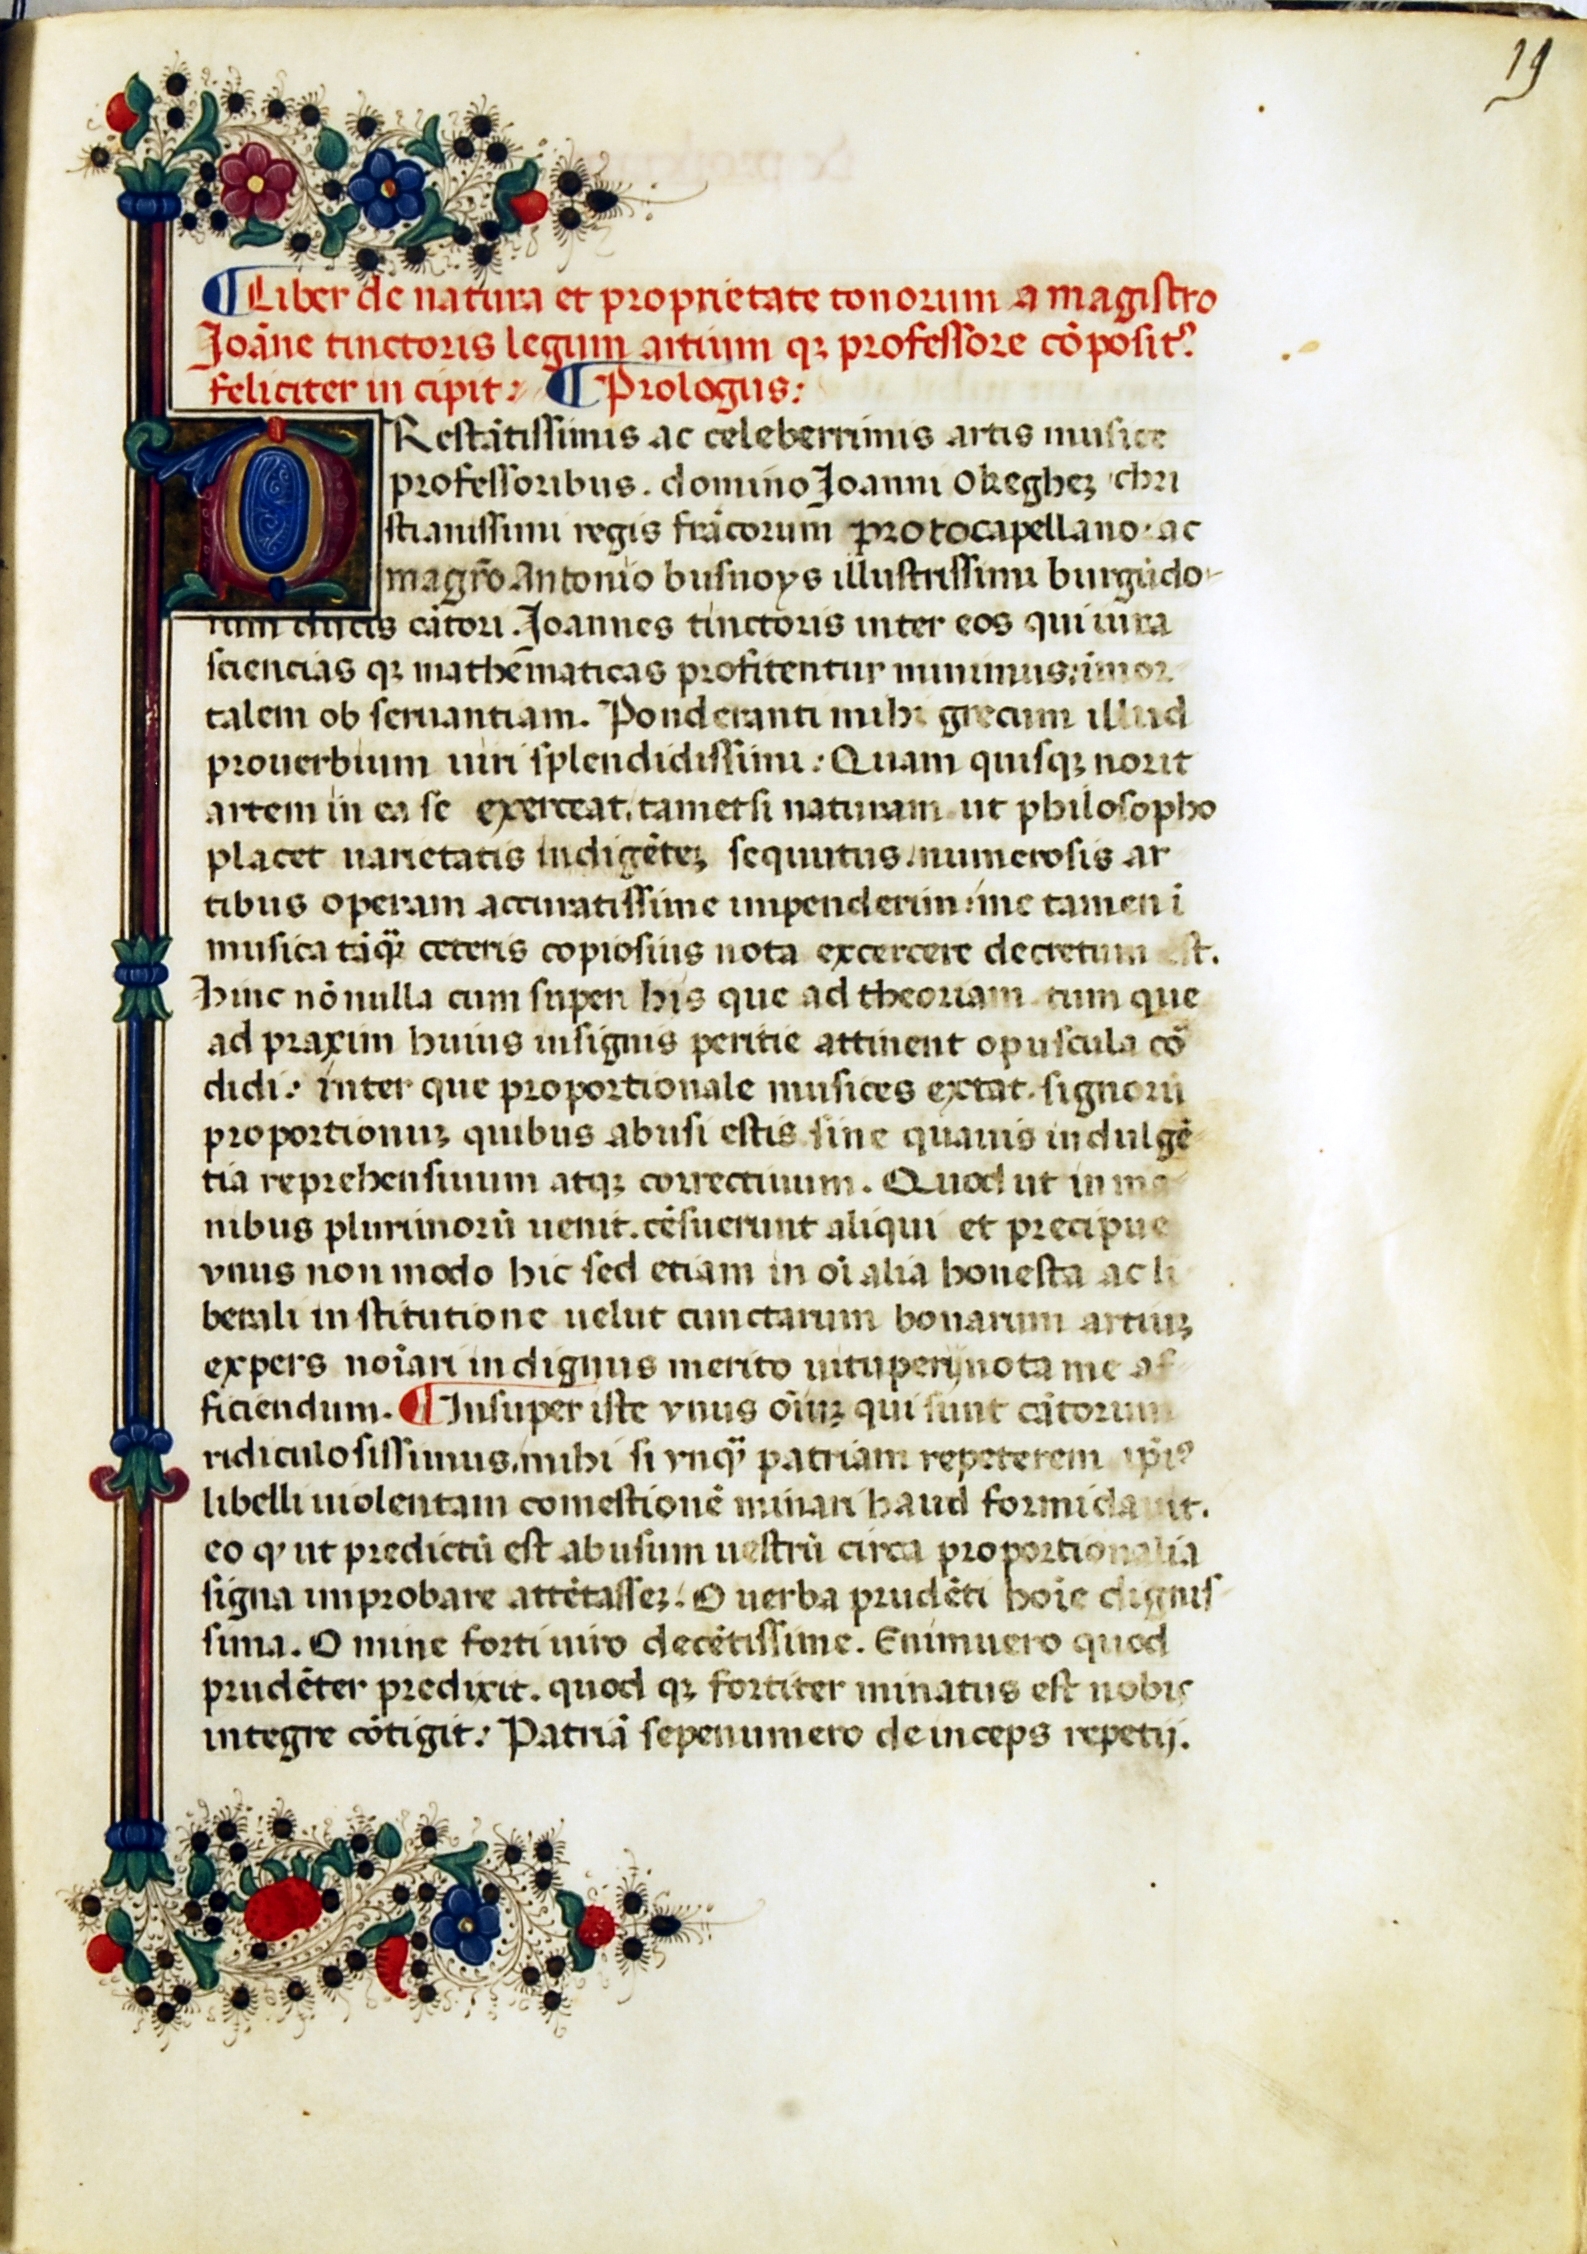 19
¶ Liber de natura et proprietate tonorum a magistro
Joãne tinctoris legum artium qꝫ professore cõposit⁹
feliciter in cipit: ¶ Prologus:
Restãtissimis ac celeberrimis artis musice
professoribus. domino Joanni okegheꝫ chri
stianissimi regis frãcorum protocapellano. ac
magrõ Antonio busnoys illustrissimi burgũdo
rum ducis cãtori. Joannes tinctoris inter eos qui iura
sciencias qꝫ mathematicas profitentur minimus: imor
talem ob seruantiam. Ponderanti mihi grecum illud
prouerbium uiri splendidissimi: Quam quisqꝫ norit
artem in ea se exerceat, tametsi naturam ut philosopho
placet uarietatis indigẽteꝫ sequutus, numerosis ar
tibus operam accuratissime impenderim: me tamen ĩ
musica tãq̃ꝫ ceteris copiosius nota excercere decretum est.
hinc nõnulla cum super his que ad theoriam tum que
ad praxim huius insignis peritie attinent opuscula cõ
didi: inter que proportionale musices extat. signorũ
proportionuꝫ quibus abusi estis sine quauis indulgẽ
tia reprehensiuum atqꝫ correctiuum. Quod ut in ma
nibus plurimorũ uenit. cẽsuerunt aliqui et precipue
vnus non modo hic sed etiam in oĩ alia honesta ac li
berali in stitutione uelut cunctarum bonarum artiuꝫ
expers noĩari indignus merito uituperij nota me af
ficiendum. ¶ Insuper iste vnus oĩuꝫ qui sunt cãtorum
ridiculosissimus, mihi si vnq̃ꝫ patriam repeterem ip̃i⁹
libelli uiolentam comestionẽ minari haud formidauit.
eo ꝙ ut predictũ est abusum uestrũ circa proportionalia
signa improbare attẽtasseꝫ. O uerba prudẽti hoĩe dignis
sima. O mine forti uiro decẽtissime. Enimuero quod
prudẽter predixit. quod qꝫ fortiter minatus est nobis
integre cõtigit: Patriã sepenumero deinceps repetij.